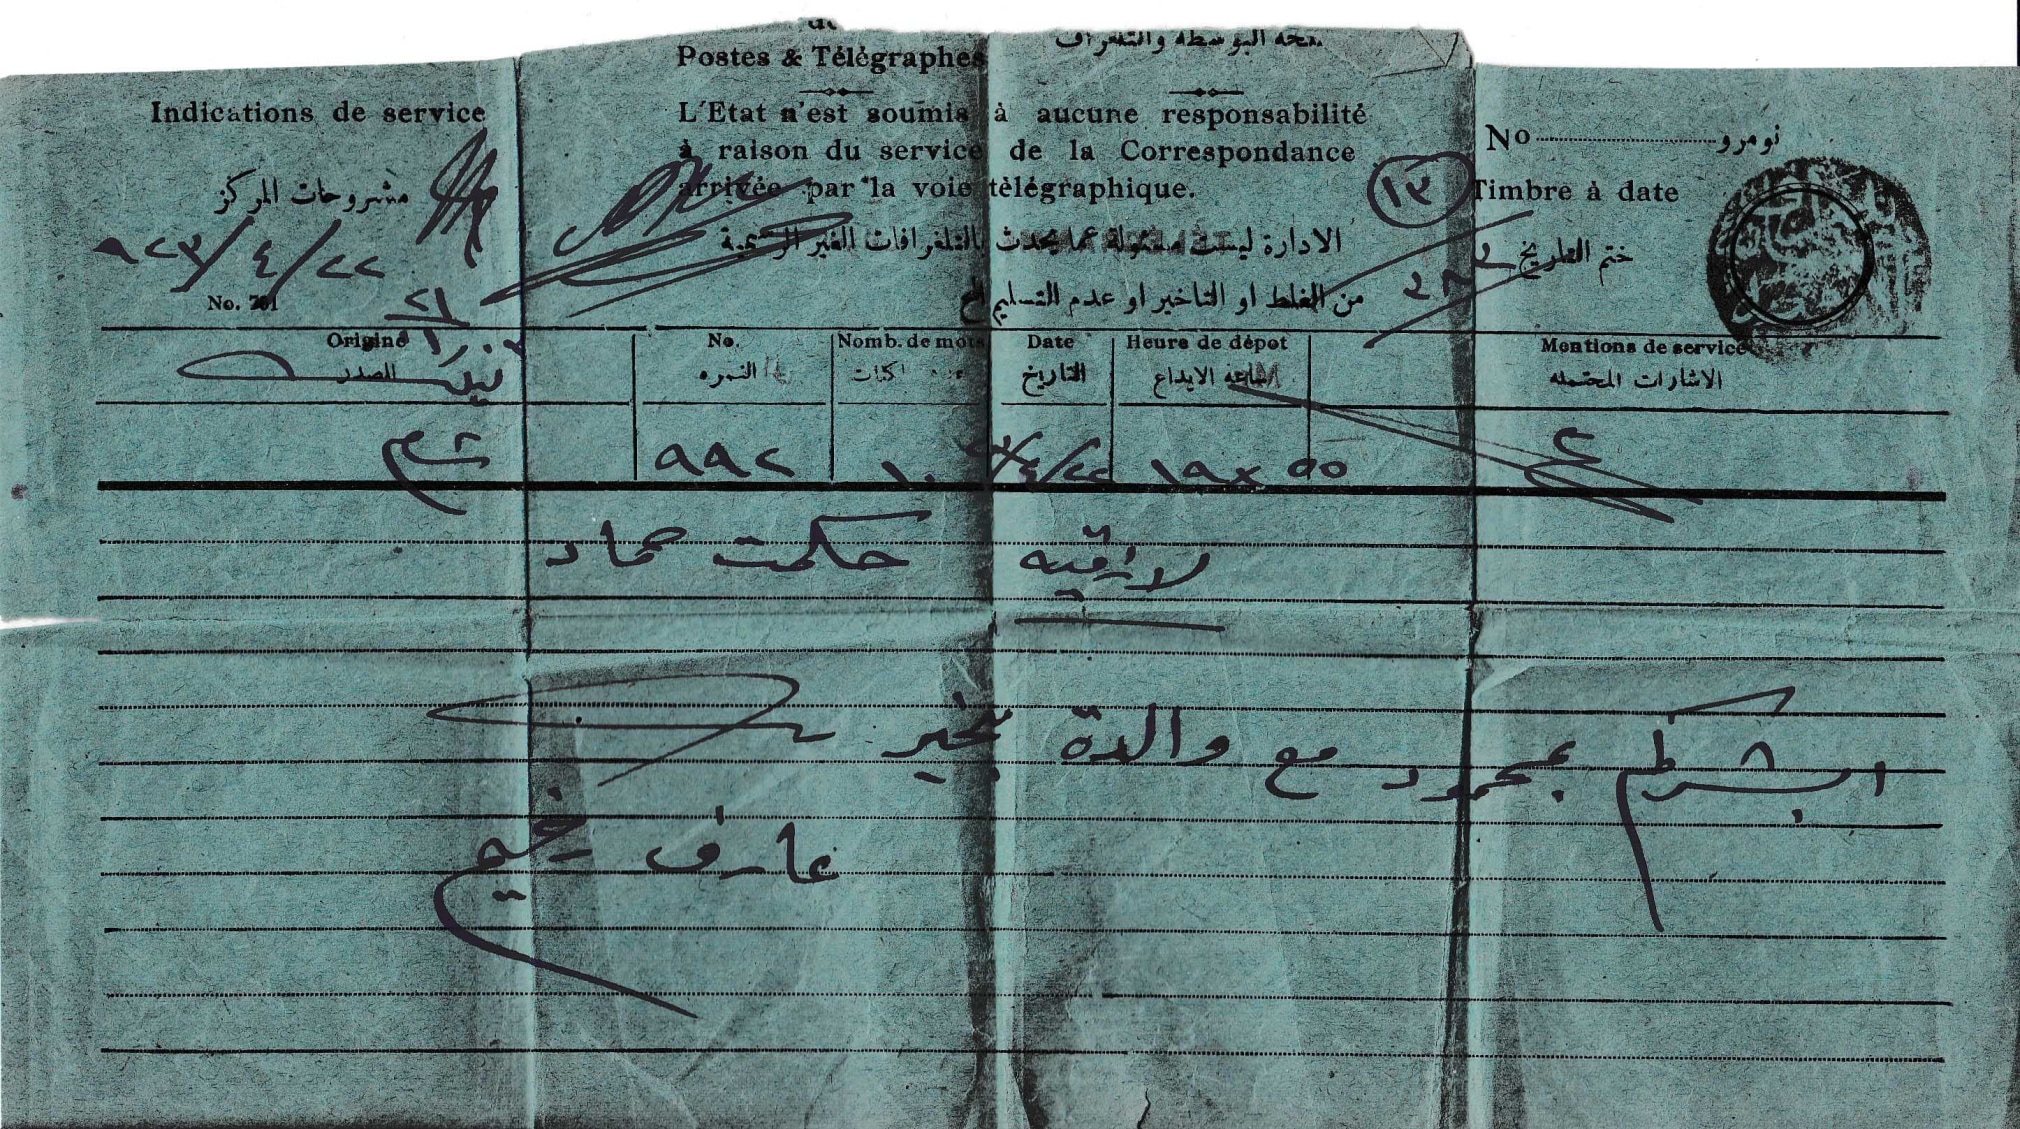 Postes & Télégraphes
البوسطة والتلغراف
Indications de service
L'Etat n'est soumis à aucune responsabilité
à raison du service de la Correspondance
arrivée par la voie télégraphique.
No نومرو
مشروحات المركز
١٣
Timbre à date
الادارة ليست مسئولة عما يحدث بالتلغرافات الغير الرسمية
ختم التاريخ
٩٢٣/٤/٢٢
من الغلط او التاخير او عدم التسليم الخ
No. 701
٢١
Origine No. Nomb. de mots Date Heure de dépot Mentions de service
المصدر النمره عدد الكلمات التاريخ ساعة الايداع الاشارات المحتمله
شام ٩٩٢ ١٠ ٢٢/٤ ١٩ ٥٥
لاذقيه حكمت حماد
ابشركم بمحمود مع والدة بخير
عارف